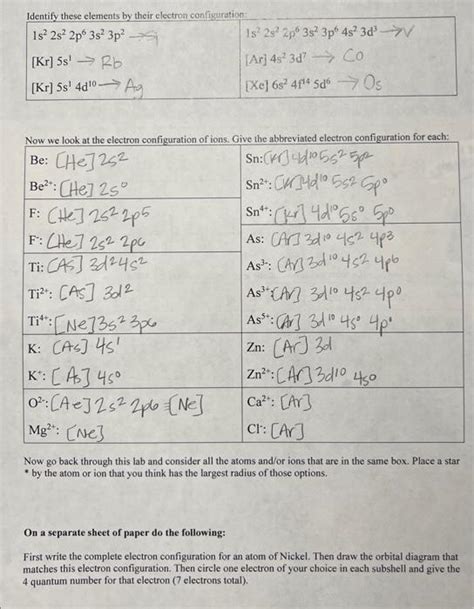 Identify these elements by their electron configuration:
1s² 2s² 2p⁶ 3s² 3p² → Si
1s² 2s² 2p⁶ 3s² 3p⁶ 4s² 3d³ → V
[Kr] 5s¹ → Rb
[Ar] 4s² 3d⁷ → Co
[Kr] 5s¹ 4d¹⁰ → Ag
[Xe] 6s² 4f¹⁴ 5d⁶ → Os
Now we look at the electron configuration of ions. Give the abbreviated electron configuration for each:
Be: [He] 2s²
Be²⁺: [He] 2s⁰
F: [He] 2s² 2p⁵
F⁻: [He] 2s² 2p⁶
Ti: [As] 3d² 4s²
Ti²⁺: [As] 3d²
Ti⁴⁺: [Ne] 3s² 3p⁶
K: [As] 4s¹
K⁺: [As] 4s⁰
O²⁻: [Ae] 2s² 2p⁶ = [Ne]
Mg²⁺: [Ne]
Sn: [Kr] 4d¹⁰ 5s² 5p²
Sn²⁺: [Kr] 4d¹⁰ 5s² 5p⁰
Sn⁴⁺: [Kr] 4d¹⁰ 5s⁰ 5p⁰
As: [Ar] 3d¹⁰ 4s² 4p³
As³⁻: [Ar] 3d¹⁰ 4s² 4p⁶
As³⁺: [Ar] 3d¹⁰ 4s² 4p⁰
As⁵⁺: [Ar] 3d¹⁰ 4s⁰ 4p⁰
Zn: [Ar] 3d
Zn²⁺: [Ar] 3d¹⁰ 4s⁰
Ca²⁺: [Ar]
Cl⁻: [Ar]
Now go back through this lab and consider all the atoms and/or ions that are in the same box. Place a star
* by the atom or ion that you think has the largest radius of those options.
On a separate sheet of paper do the following:
First write the complete electron configuration for an atom of Nickel. Then draw the orbital diagram that
matches this electron configuration. Then circle one electron of your choice in each subshell and give the
4 quantum number for that electron (7 electrons total).